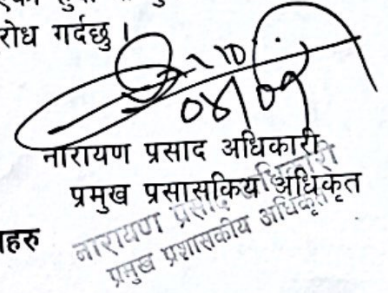 रोध गर्दछु ।
०४/०९
नारायण प्रसाद अधिकारी
प्रमुख प्रसासकिय अधिकृत
हरु
नारायण प्रसाद अधिकारी
प्रमुख प्रशासकीय अधिकृत